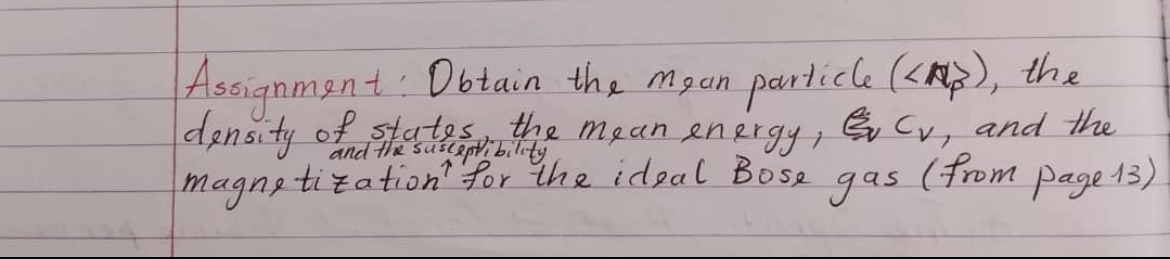 Assignment: Obtain the mean particle (<n_p>), the
density of states, the mean energy, Cv, and the
and the susceptibility
magnetization↑ for the ideal Bose gas (from page 13)